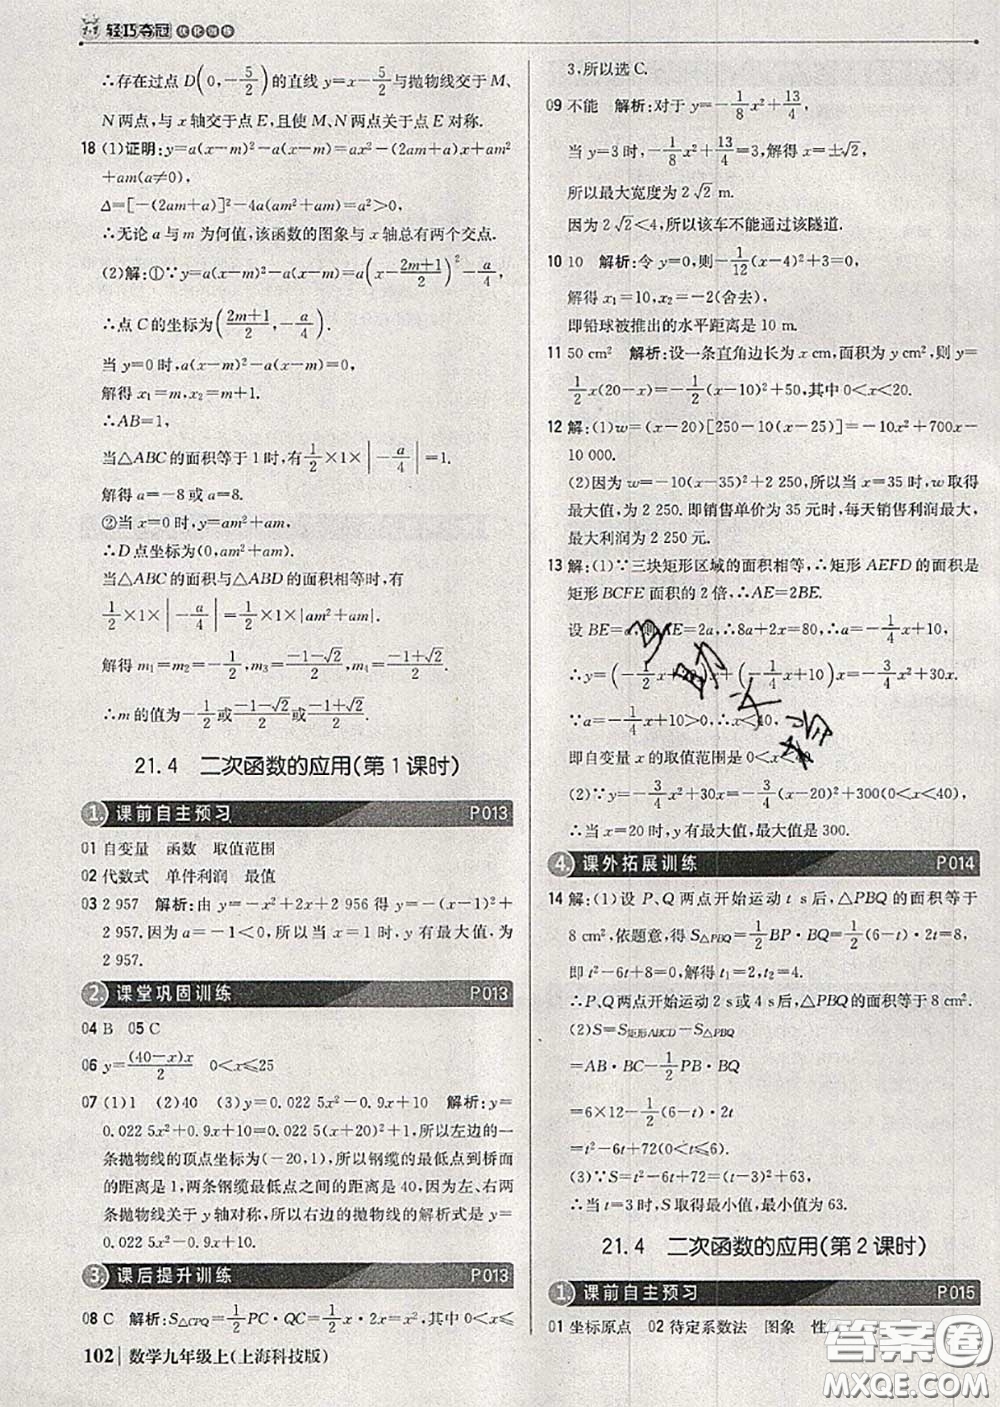 1+1 轻巧夺冠 优化训练
∴存在过点 D(0,-5/2)的直线 y=x-5/2与抛物线交于 M、
N 两点,与 x 轴交于点 E,且使 M、N 两点关于点 E 对称.
18 (1)证明:y=a(x-m)²-a(x-m)=ax²-(2am+a)x+am²
+am(a≠0),
Δ=[-(2am+a)]²-4a(am²+am)=a²>0,
∴无论 a 与 m 为何值,该函数的图象与 x 轴总有两个交点.
(2)解:①∵y=a(x-m)²-a(x-m)=a(x-(2m+1)/2)²-a/4,
∴点 C 的坐标为((2m+1)/2,-a/4).
当 y=0 时,a(x-m)²-a(x-m)=0,
解得 x₁=m,x₂=m+1.
∴AB=1,
当△ABC 的面积等于 1 时,有1/2×1×|-a/4|=1.
解得 a=-8 或 a=8.
②当 x=0 时,y=am²+am,
∴D 点坐标为(0,am²+am).
当△ABC 的面积与△ABD 的面积相等时,有
1/2×1×|-a/4|=1/2×1×|am²+am|.
解得 m₁=m₂=-1/2,m₃=(-1-√2)/2,m₄=(-1+√2)/2.
∴m 的值为-1/2或(-1-√2)/2或(-1+√2)/2.
21.4 二次函数的应用(第 1 课时)
1. 课前自主预习 P013
01 自变量 函数 取值范围
02 代数式 单件利润 最值
03 2 957 解析:由 y=-x²+2x+2 956 得 y=-(x-1)²+
2 957. 因为 a=-1<0,所以当 x=1 时,y 有最大值,为
2 957.
2. 课堂巩固训练 P013
04 B 05 C
06 y=(40-x)x/2 0<x≤25
07 (1)1 (2)40 (3)y=0.022 5x²-0.9x+10 解析:y=
0.022 5x²+0.9x+10=0.022 5(x+20)²+1,所以左边的一
条抛物线的顶点坐标为(-20,1),所以钢缆的最低点到桥面
的距离是 1,两条钢缆最低点之间的距离是 40,因为左、右两
条抛物线关于 y 轴对称,所以右边的抛物线的解析式是 y=
0.022 5x²-0.9x+10.
3. 课后提升训练 P013
08 C 解析:S△CPQ=1/2PC·QC=1/2x·2x=x²,0<x≤
102 数学九年级上(上海科技版)
3,所以选 C.
09 不能 解析:对于 y=-1/8x²+13/4,
当 y=3 时,-1/8x²+13/4=3,解得 x=±√2,
所以最大宽度为 2√2 m.
因为 2√2<4,所以该车不能通过该隧道.
10 10 解析:令 y=0,则-1/12(x-4)²+3=0,
解得 x₁=10,x₂=-2(舍去),
即铅球被推出的水平距离是 10 m.
11 50 cm² 解析:设一条直角边长为 x cm,面积为 y cm²,则 y=
1/2x(20-x)=-1/2(x-10)²+50,其中 0<x<20.
12 解:(1)w=(x-20)[250-10(x-25)]=-10x²+700x-
10 000.
(2)因为 w=-10(x-35)²+2 250,所以当 x=35 时,w 取得
最大值,为 2 250. 即销售单价为 35 元时,每天销售利润最大,
最大利润为 2 250 元.
13 解:(1)∵三块矩形区域的面积相等,∴矩形 AEFD 的面积是
矩形 BCFE 面积的 2 倍,∴AE=2BE.
设 BE=a,则AE=2a,∴8a+2x=80,∴a=-1/4x+10,
∴y=(-1/2x+20)x+(-1/4x+10)x=-3/4x²+30x.
∵a=-1/4x+10>0,∴x<40,
即自变量 x 的取值范围是 0<x<40.
(2)∵y=-3/4x²+30x=-3/4(x-20)²+300,
∴当 x=20 时,y 有最大值,最大值是 300.
4. 课外拓展训练 P014
14 解:(1)设 P、Q 两点开始运动 t s 后,△PBQ 的面积等于
8 cm²,依题意,得 S△PBQ=1/2BP·BQ=1/2(6-t)·2t=8,
即 t²-6t+8=0,解得 t₁=2,t₂=4.
∴P、Q 两点开始运动 2 s或 4 s后,△PBQ 的面积等于 8 cm².
(2)S=S矩形ABCD-S△PBQ
=AB·BC-1/2PB·BQ
=6×12-1/2(6-t)·2t
=t²-6t+72(0<t≤6).
(3)∵S=t²-6t+72=(t-3)²+63,
∴当 t=3 时,S 取得最小值,最小值为 63.
21.4 二次函数的应用(第 2 课时)
1. 课前自主预习 P015
01 坐标原点 02 待定系数法 图象 性
互助文档
答案圈
MXQE.COM